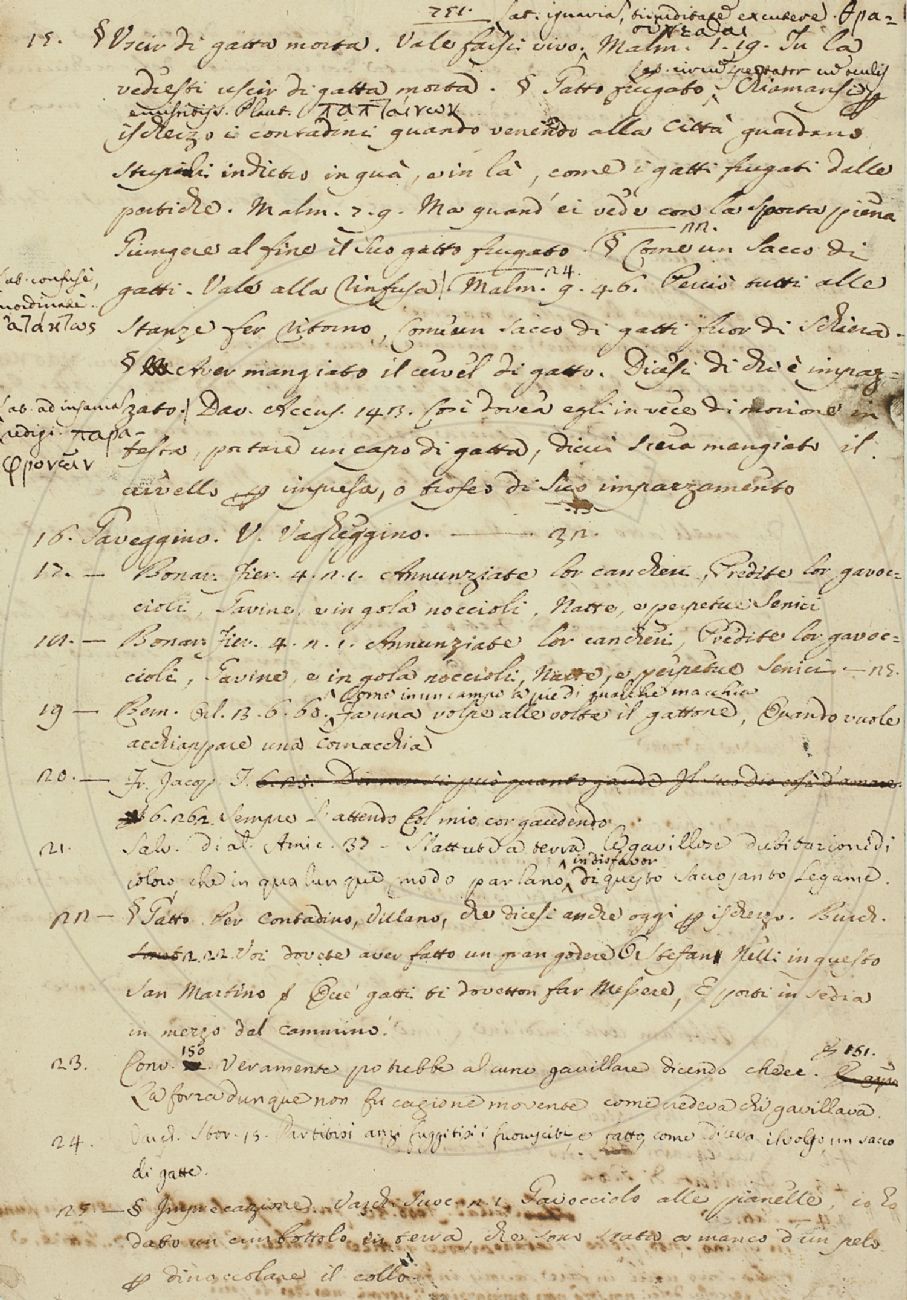 751. lat. ignavia, timiditate excutere. θρα-
συνεσθαι
15. § Uscir di gatta morta. Vale farsi vivo. Malm. 1. 19. Tu la
vedesti uscir di gatta morta. § Gatto frugato, Chiamansi p
lat. circumspectator cum oculis
emissitiis. Plaut. παπταίνων
ischerzo i contadini quando venendo alla Città guardano
stupidi indietro in quà, e in là, come i gatti frugati dalle
pertiche. Malm. 7. 9. Ma quand' ei vede con la sporta piena
Giungere al fine il suo gatto frugato. § Come un Sacco di
22.
gatti. Vale alla Rinfusa. Malm. 9. 46. Perciò tutti alle
24.
lat. confuse,
inordinate.
ἀτάκτως
Stanze fer ritorno, Com'un sacco di gatti fuor di schiera.
§ Aver mangiato il cervel di gatto. Dicesi di chi è impaz-
lat. ad insania
redigi. παρα-
φρονεῖν
zato. Dav. Accus. 143. Così dovea egli in vece di morione in
testa, portare un capo di gatta, di cui s'era mangiato il
cervello p impresa, o trofeo di suo impazzamento
16. Gaveggino. V. Vagheggino. 32.
17. — Bonar. Fier. 4. 2. 1. Annunziate lor cancheri, Predite lor gavoc-
cioli, Gavine, e in gola noccioli, Natte, e perpetue Senici
18. — Bonar. Fier. 4. 2. 1. Annunziate lor cancheri, Predite lor gavoc-
cioli, Gavine, e in gola noccioli, Natte, e perpetue Senici — 25.
Come in un campo a piè di qualche macchia
19 — Bern. Orl. 13. 6. 60. Fa una volpe alle volte il gattone, Quando vuole
acchiappare una cornacchia
20. — Fr. Jacop. T. 6. 23.
6. 262 Sempre l'attendo Col mio cor gaudendo
21. Salv. dial. Amic. 37 - S'attuta a terra le gavillose dubitazioni di
coloro, che in qualunque modo parlano, in disfavor di questo sacrosanto Legame.
22 — § Gatto. Per Contadino, Villano, che dicesi anche oggi p ischerzo. Burch.
2. 22. Voi dovete aver fatto un gran godere Or Stefan Nelli in questo
San Martino Que' gatti ti dovetton far Messere, E porti in sedia
in mezzo dal cammino.
23. Conv. 150 Veramente potrebbe alcuno gavillare dicendo che ec. E 151.
La forza dunque non fu cagione movente come credeva chi gavillava.
24. Varch. Stor. 15. Partitisi anzi fuggitisi i fuorusciti, e fatto, come diceva il volgo, un sacco
di gatte.
25 — § Imprecazione. Varch. Suoc. 2. 1. Gavocciolo alle pianelle, io ho
dato un cimbottolo in terra, che sono stato a manco d'un pelo
p dinoccolare il collo.